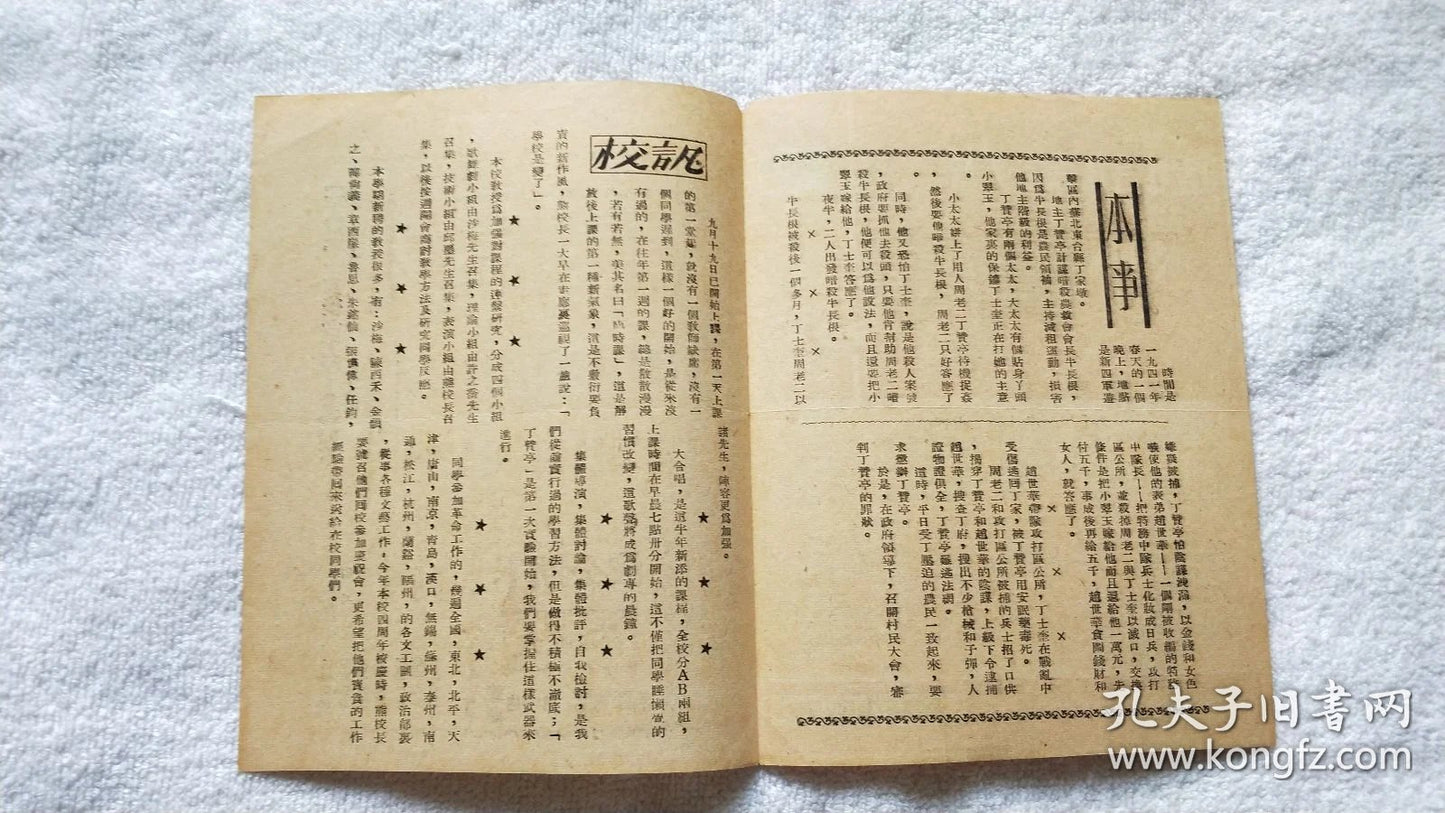 本事
時間是
一九四一年
春天的一個
晚上，地點
是新四軍遊
擊區內蘇北東台縣丁家墩。
地主丁贊亭計謀暗殺農救會會長牛長根，
因為牛長根是農民領袖，主持減租運動，損害
他地主階級的利益。
丁贊亭有兩個太太，大太太有個貼身丫頭
小翠玉，他家裏的保鏢丁士奎正在打她的主意
。
小太太姘上了用人周老二丁贊亭待機捉姦
，然後要他暗殺牛長根，周老二只好答應了
。
同時，他又恐怕丁士奎，說是他殺人案發
，政府要抓他去殺頭，只要他肯幫助周老二暗
殺牛長根，他便可以為他設法，而且還要把小
翠玉嫁給他，丁士奎答應了。
夜半，二人出發暗殺牛長根。
× × ×
牛長根被殺後一個多月，丁士奎周老二以
嫌疑被捕，丁贊亭怕陰謀洩漏，以金錢和女色
嗾使他的表弟趙世華——一個剛被收編的特務
中隊長——把特務中隊兵士化妝成日兵，攻打
區公所，並殺掉周老二與丁士奎以滅口，交換
條件是把小翠玉嫁給他而且還給他一萬元，先
付五千，事成後再給五千，趙世華貪圖錢財和
女人，就答應了。
× × ×
趙世華帶隊攻打區公所，丁士奎在戰亂中
受傷逃回丁家，被丁贊亭用安眠藥毒死。
周老二和攻打區公所被捕的兵士招了口供
，揭穿丁贊亭和趙世華的陰謀，上級下令逮捕
趙世華，搜查丁府，搜出不少槍械和子彈，人
證物證俱全，丁贊亭難逃法網。
這時，平日受丁壓迫的農民一致起來，要
求懲辦丁贊亭。
於是，在政府領導下，召開村民大會，審
判丁贊亭的罪狀。
校訊
九月十九日已開始上課，在第一天上課
的第一堂課，就沒有一個教師缺席，沒有一
個同學遲到，這樣一個好的開始，是從來沒
有過的，在往年第一週的課，總是散散漫漫
，若有若無，美其名曰「臨時課」，這是解
放後上課的第一種新氣象，這是不敷衍要負
責的新作風，熊校長一大早在走廊裏巡視了一遍說：「
學校是變了」。
★ ★ ★
本校教授為加強對課程的連繫研究，分成四個小組
，歌舞劇小組由沙梅先生召集，理論小組由許之喬先生
召集，技術小組由邱璽先生召集，表演小組由熊校長召
集，以後按週開會商討教學方法及研究同學反應。
★ ★ ★
本學期新聘的教授很多，有：沙梅、陳西禾、金韻
之、章西厓、魯思、朱銘仙、張慎儀、任鈞，
諸先生，陣容更為加强。
★ ★ ★
大合唱，是這半年新添的課程，全校分AB兩組，
上課時間在早晨七點卅分開始，這不僅把同學睡懶覺的
習慣改變，這歌聲將成為劇專的晨鐘。
★ ★ ★
集體導演，集體討論，集體批評，自我檢討，是我
們從前實行過的學習方法，但是做得不積極不徹底；「
丁贊亭」是第一次實驗開始，我們要掌握住這樣武器來
進行。
★ ★ ★
同學參加革命工作的，幾遍全國，東北，北平，天
津，唐山，南京，青島，漢口，無錫，蘇州，泰州，南
通，松江，杭州，蘭谿，福州，的各文工團，政治部裏
，從事各種文藝工作。今年本校四周年校慶時，熊校長
要號召他們回校參加慶祝會，更希望把他們寶貴的工作
經驗帶回來送給在校同學們。
孔夫子旧书网
www.kongfz.com